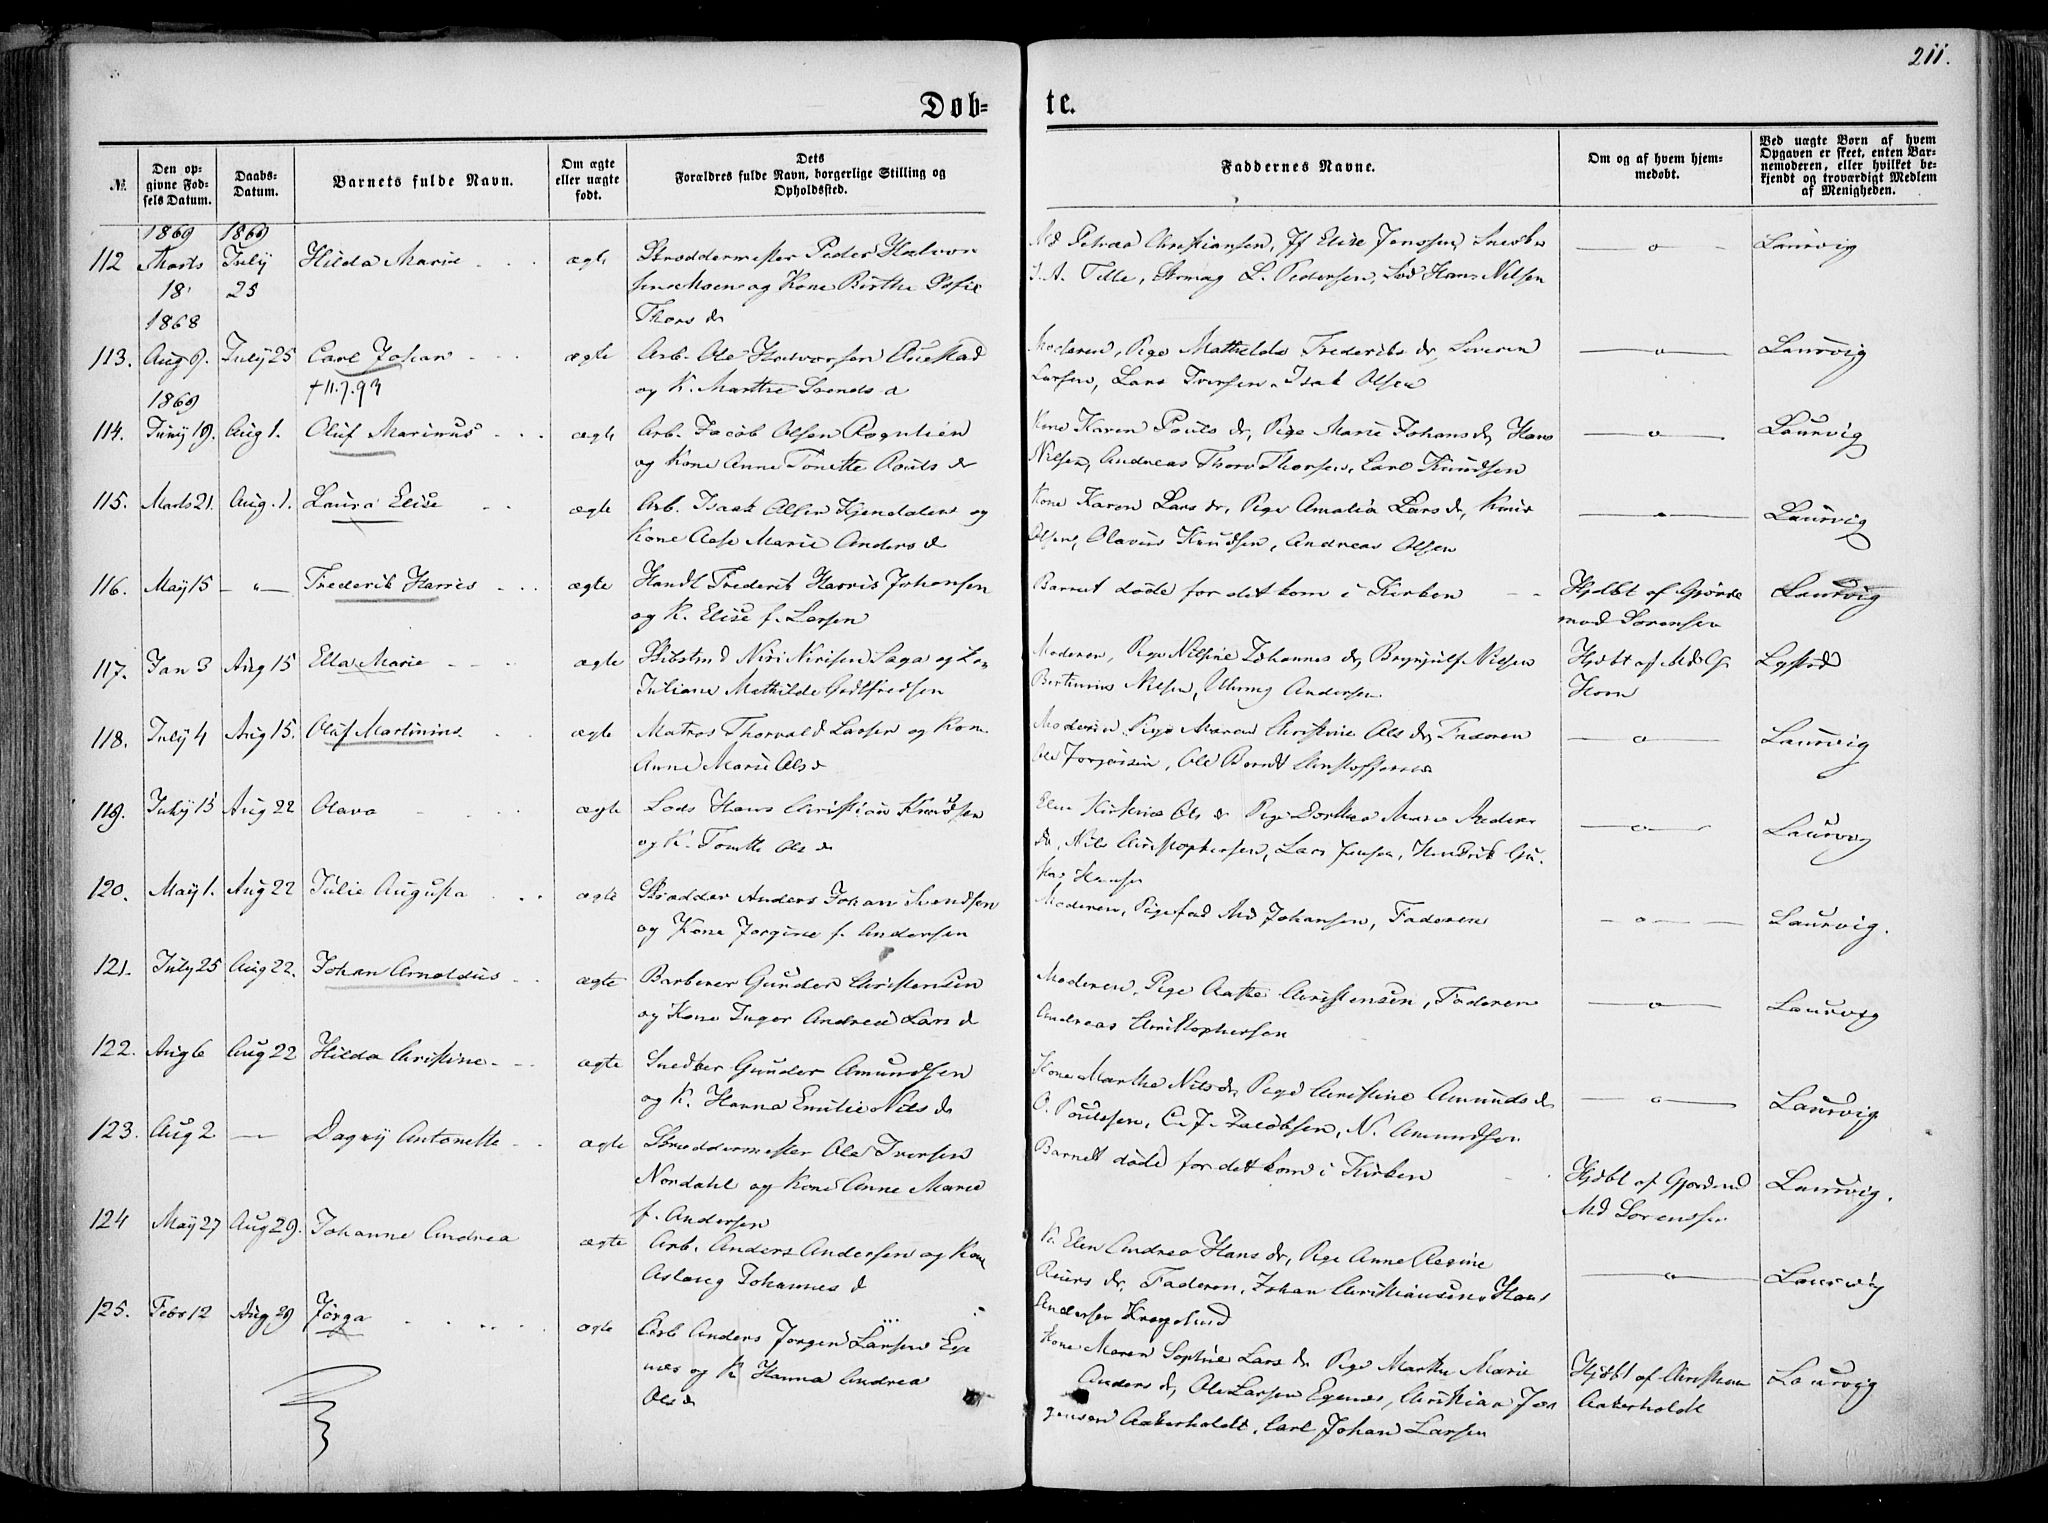 211.
Døb-
te.
№
Den op-
givne Fød-
sels Datum.
Daabs-
Datum.
Barnets fulde Navn.
Om ægte
eller uægte
født.
Dets
Forældres fulde Navn, borgerlige Stilling og
Opholdssted.
Faddernes Navne.
Om og af hvem hjem-
medøbt.
Ved uægte Børn af hvem
Opgaven er skeet, enten Bar-
nemoderen, eller hvilket be-
kjendt og troværdigt Medlem
af Menigheden.
1869 1869
112 Marts July Hilda Marie ægte Skræddermester Peder Halvor
18 25 sen Moen og Kone Birthe Sofie
Thors dr
Petrea Christiansen, Jf Elise Jenssen, Snedker
Tille, L. Pedersen, Lods Hans Nilsen
—o— Laurvig
1868
113. Aug 9. July 25 Carl Johan ægte Arb. Ole Halvorsen Auestad
†11.7.93 og K. Marthe Svends d
Moderen, Pige Mathilde Frederiks dr, Severin
Larsen, Lars Iversen, Isak Olsen
—o— Laurvig
1869
114. Juny 19. Aug 1. Oluf Marinus ægte Arb. Jacob Olsen Rognlien
og Kone Anne Tonette Pouls dr
Kone Karen Pouls dr, Pige Marie Johans dr, Hans
Nilsen, Andreas Thorsen, Carl Knudsen
—o— Laurvig
115. Marts 21. Aug. 1. Laura Elise ægte Arb. Isaak Olsen Kjendalen og
Kone Aase Marie Anders d
Kone Karen Lars dr, Pige Amalia Lars dr,
Olsen, Olavus Knudsen, Andreas Olsen
—o— Laurvig
116. May 15 — " — Frederik Harris ægte Handl Frederik Harris Johansen
og K. Elise f. Larsen
Barnet døde før det kom i Kirken
Hjdbt af Gjorde
mod Sørensen
Laurvig
117. Jan 3 Aug 15 Ella Marie ægte Skibsmd Niri Nirisen Saga og
Juliane Mathilde Godtfredsen
Moderen, Pige Nilsine Johannes dr, Brynjulf Nilsen
Nilsen, Andersen
Hjdbt af Md G.
Horn
118. July 4 Aug 15. Oluf Martinius ægte Matros Thorvald Larsen og Kone
Anne Marie Ols d
Moderen, Pige Maren Christine Ols dr, Faderen
Ole Jørgensen, Ole Berndt Christoffersen
—o— Laurvig
119. July 15 Aug 22 Olava ægte Lods Hans Christian Knudsen
og K. Tonette Ols dr
Ols dr Pige Dorthea Marie Peders
dr, Nils Christophersen, Lars Jensen, Hendrik Gu-
Hansen
—o— Laurvig
120. May 1. Aug 22 Julie Augusta ægte Skrædder Anders Johan Svendsen
og Kone Jørgine f. Andersen
Moderen, Johansen, Faderen
—o— Laurvig.
121. July 25 Aug 22. Johan Arnoldus ægte Barberer Gunder Christensen
og Kone Inger Andrea Lars d
Moderen, Pige Aathe Christensen, Faderen
Andreas Christophersen
—o— Laurvig
122. Aug 6 Aug 22 Hilda Christine ægte Snedker Gunder Amundsen
og K. Hanna Emilie Nils dr
Kone Marthe Nils dr, Pige Christine Amunds dr
O. Poulssen, C. J. Jacobsen, N. Amundsen
—o— Laurvig
123. Aug 2 — Dagny Antonette ægte Skræddermester Ole Iversen
Nordahl og Kone Anne Marie
f. Andersen
Barnet døde før det kom i Kirken
Hjdbt af Gjordemd
Md Sørenssen
Laurvig.
124 May 27 Aug 29. Johanne Andrea ægte Arb. Anders Andersen og Kone
Aslaug Johannes d
K. Elen Andrea Hans dr, Pige Anne Regine
Reiers dr, Faderen, Johan Christiansen, Hans
Andersen Kragelund
—o— Laurvig
125. Febr 12 Aug 29 Jørga ægte Arb Anders Jørgen Larsen Ege
næs og K Hanna Andrea
Ols dr
Kone Maren Sophie Lars dr Pige Marthe Marie
Anders dr, Ole Larsen Egenæs, Christian Jør
gensen Aakerholdt, Carl Johan Larsen
Hjdbt af Christian
Aakerholdt
Laurvig